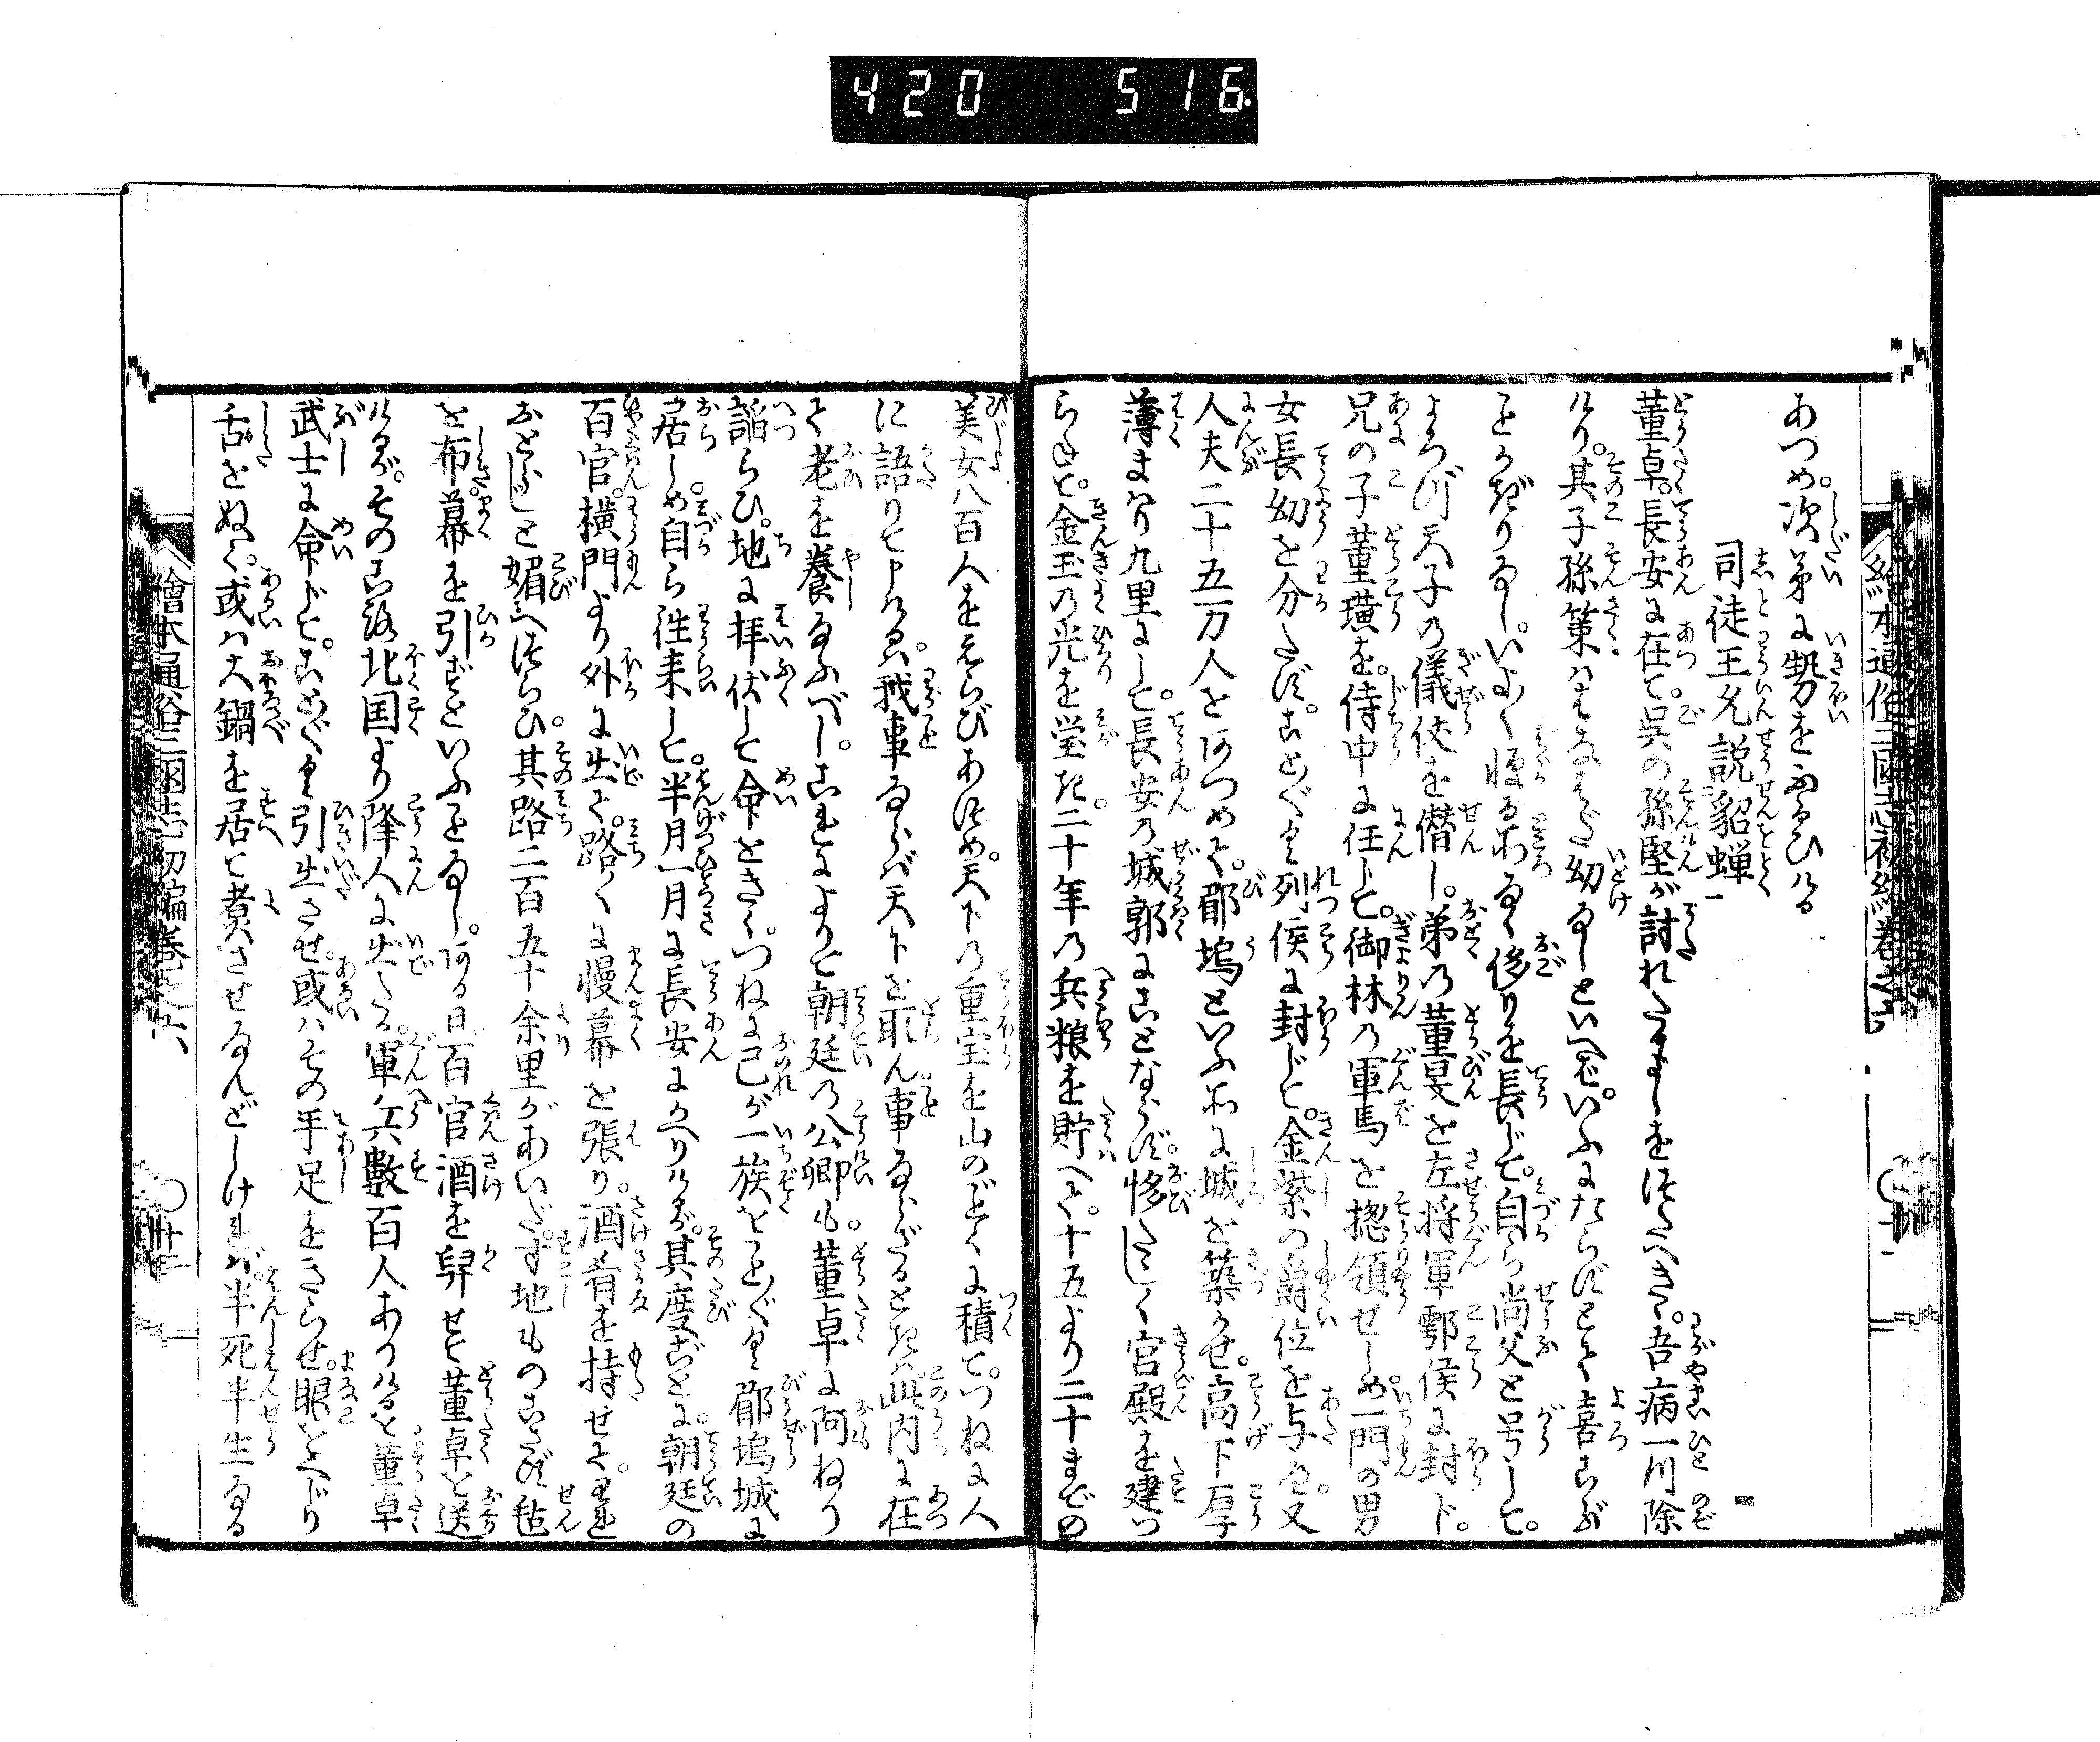 420 516
あつめ。次第に勢をふるひける
司徒王允説貂蝉
董卓。長安に在て。呉の孫堅が討れたるよしを伝へきゝ。吾病一つ除
けり。其子孫策はまだ幼なしといへば。いふにたらずとて喜こぶ
ことかぎりなし。いよ〳〵憚る所なく侈りを長じて。自ら尚父と号して。
よろづ天子の儀仗を僭し。弟の董旻を左将軍鄠侯に封ド。
兄の子董璜を。侍中に任じて。御林の軍馬を惣領せしめ。一門の男
女長幼を分たず。ことごとく列侯に封じて。金紫の爵位を与ふ。又
人夫二十五万人をあつめて。郿塢といふ所に城を築かせ。高下厚
薄まはり九里にして。長安の城郭にことならず。夥しく宮殿を建つ
らねて。金玉の光を瑩き。二十年の兵粮を貯へて。十五より二十までの
美女八百人をえらびあつめ。天下の重宝を山のごとくに積て。つねに人
に語りて申けるは。我事ならば天下を取ん。事ならざるときは此内に在
て老を養なふべし。これによりて朝廷の公卿も。董卓に阿ねり
諂らひ。地に拝伏して命をきく。つねに己が一族をことごとく郿塢城に
居しめ。自ら往来して。半月一月に長安にかへりければ。其度ごとに。朝廷の
百官。横門より外に出て。路々に幔幕を張り。酒肴を持せて。われ
おとらじと媚へつらひ。其路二百五十余里があいだ。地ものこさず毡
を布。幕を引ずといふことなし。ある日。百官酒を舁せて董卓を送
ければ。そのころ北国より降人に出たる。軍兵数百人ありけるを董卓
武士に命じて。ことごとく引出させ。或はその手足をきらせ。眼をくじり
舌をぬく。或は大鍋を居て煮させなんどしければ。半死半生なる
絵本通俗三国志初編巻之六